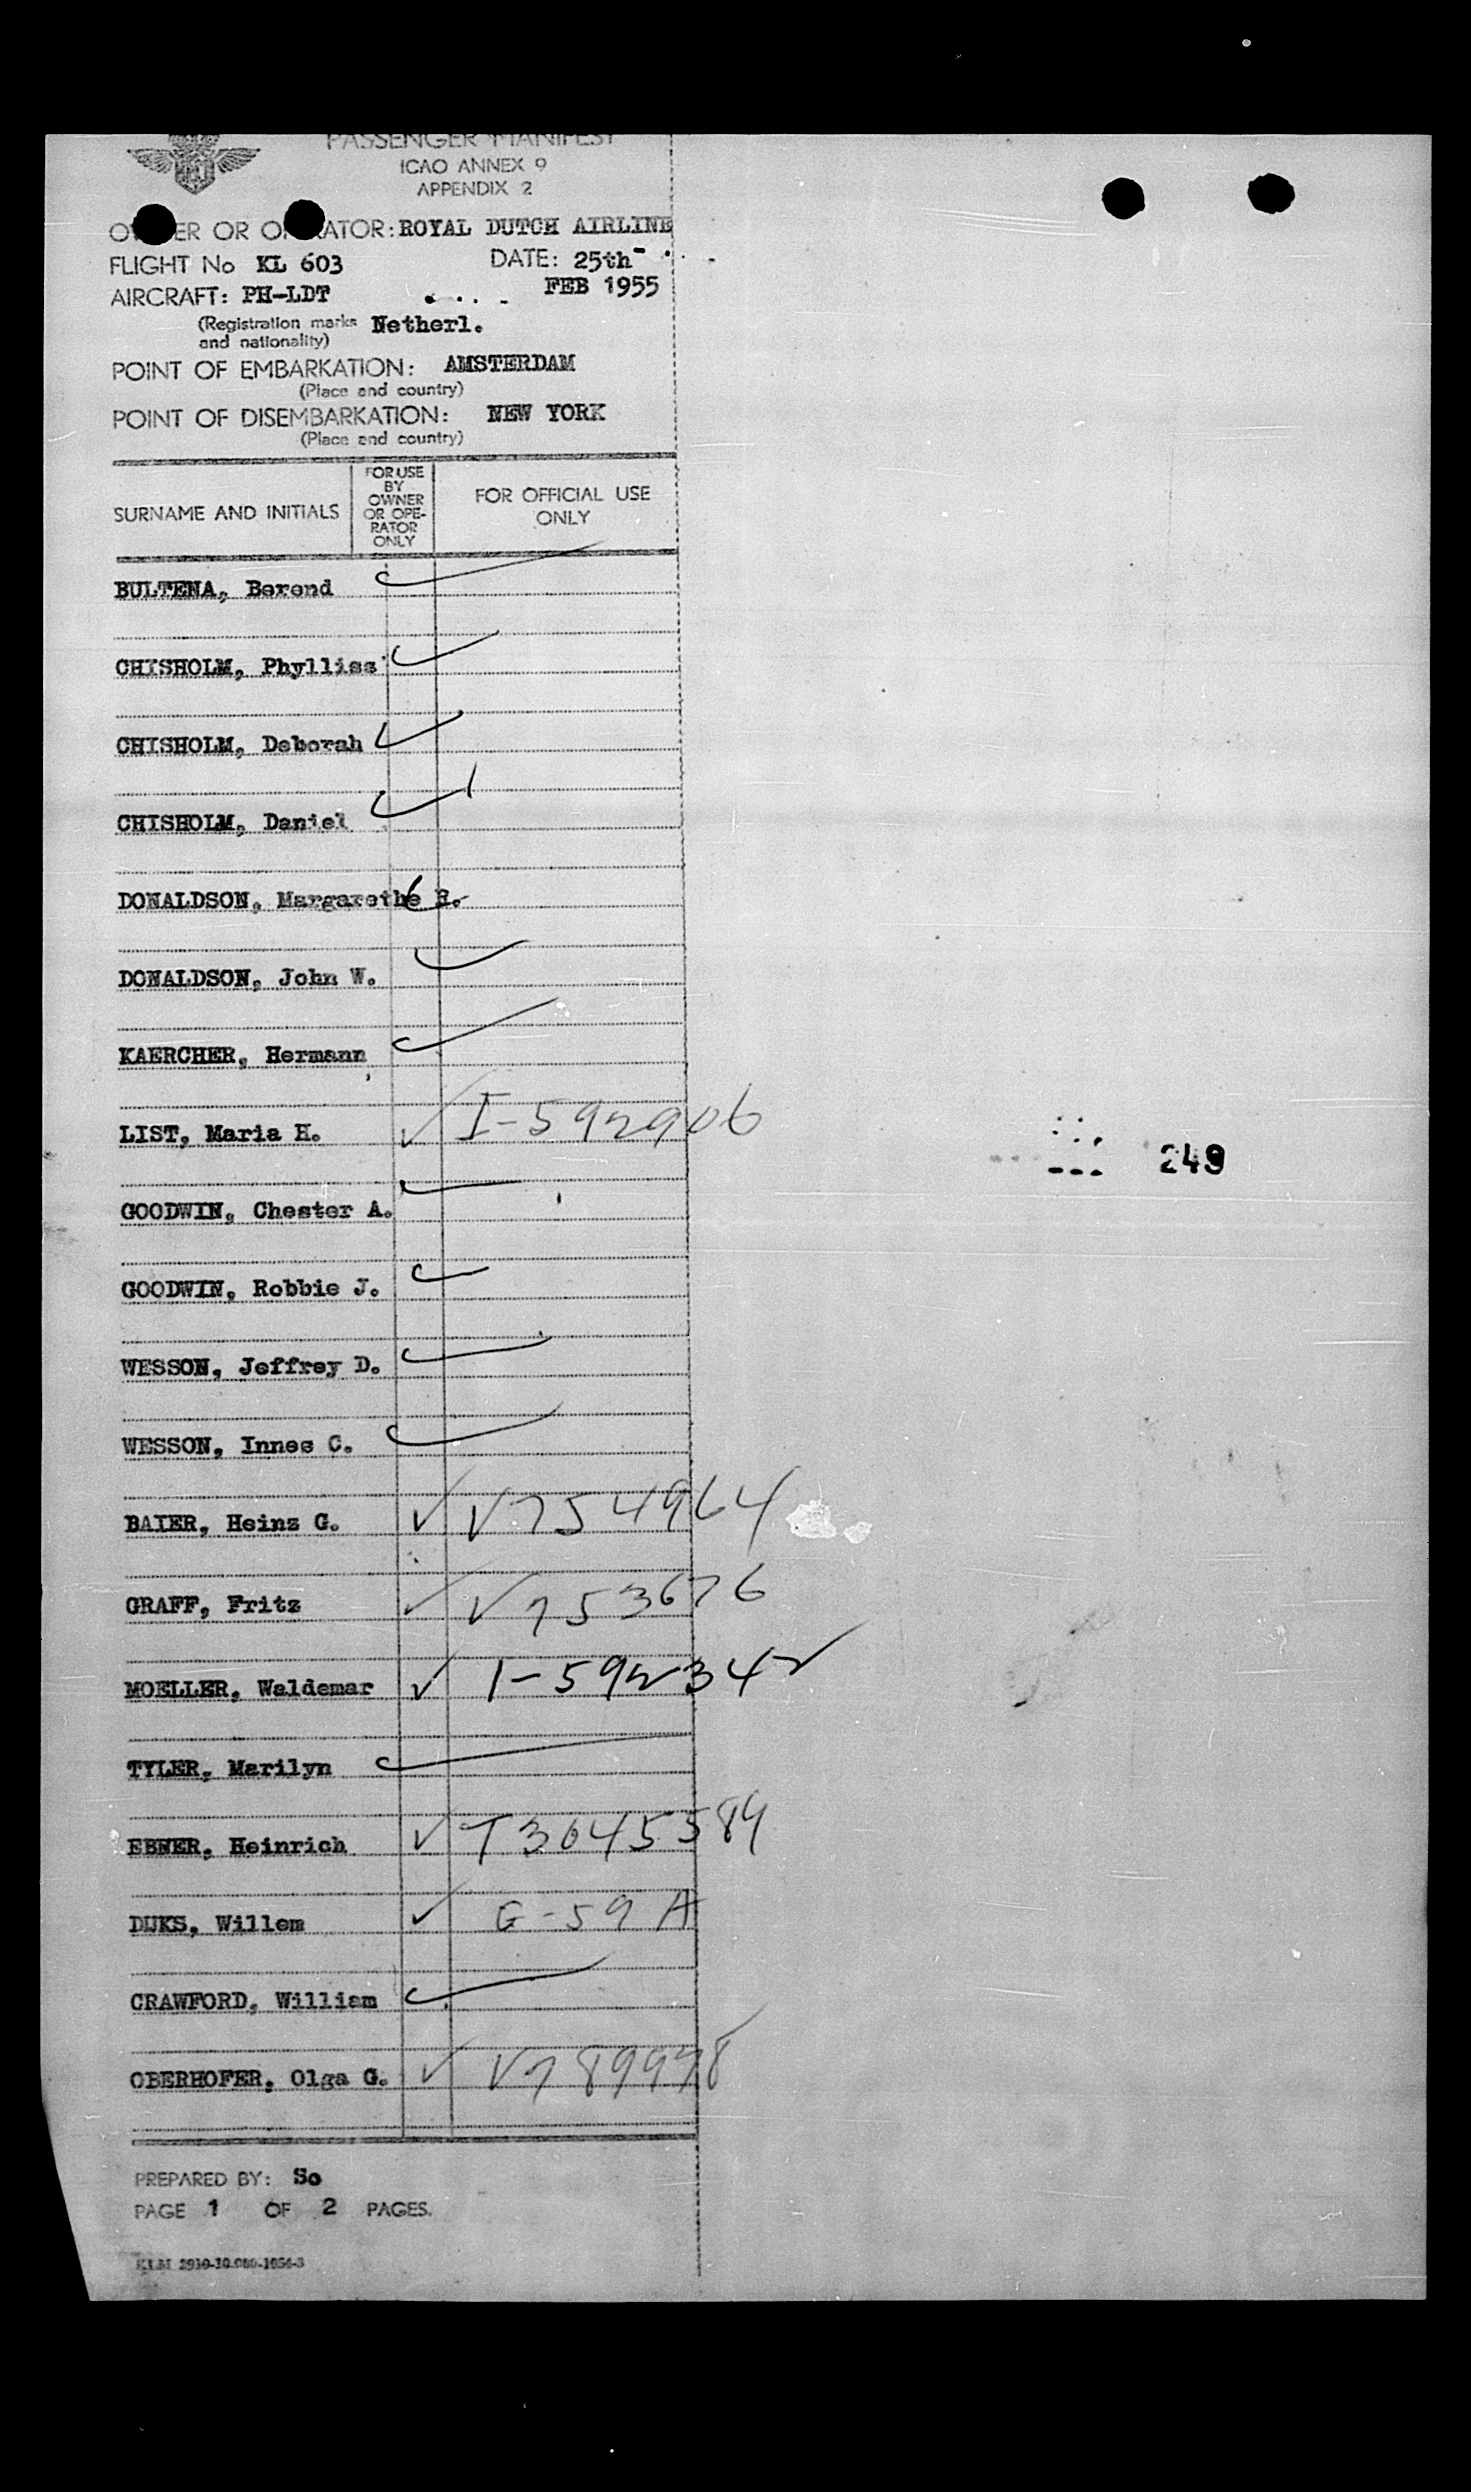 PASSENGER MANIFEST
ICAO ANNEX 9
APPENDIX 2
OWNER OR OPERATOR: ROYAL DUTCH AIRLINE
FLIGHT No KL 603 DATE: 25th
AIRCRAFT: PH-LDT FEB 1955
(Registration marks and nationality) Netherl.
POINT OF EMBARKATION: AMSTERDAM
(Place and country)
POINT OF DISEMBARKATION: NEW YORK
(Place and country)
SURNAME AND INITIALS
FOR USE BY OWNER OR OPE-RATOR ONLY
FOR OFFICIAL USE ONLY
BULTENA, Berend
CHISHOLM, Phylliss
CHISHOLM, Deborah
CHISHOLM, Daniel
DONALDSON, Margarethe
DONALDSON, John W.
KAERCHER, Hermann
LIST, Maria H. I-592906
GOODWIN, Chester A.
GOODWIN, Robbie J.
WESSON, Jeffrey D.
WESSON, Innes C.
BAIER, Heinz G. V754964
GRAFF, Fritz V753676
MOELLER, Waldemar I-592342
TYLER, Marilyn
EBNER, Heinrich T3645584
DIJKS, Willem G-59 A
CRAWFORD, William
OBERHOFER, Olga G. V789998
249
PREPARED BY: So
PAGE 1 OF 2 PAGES.